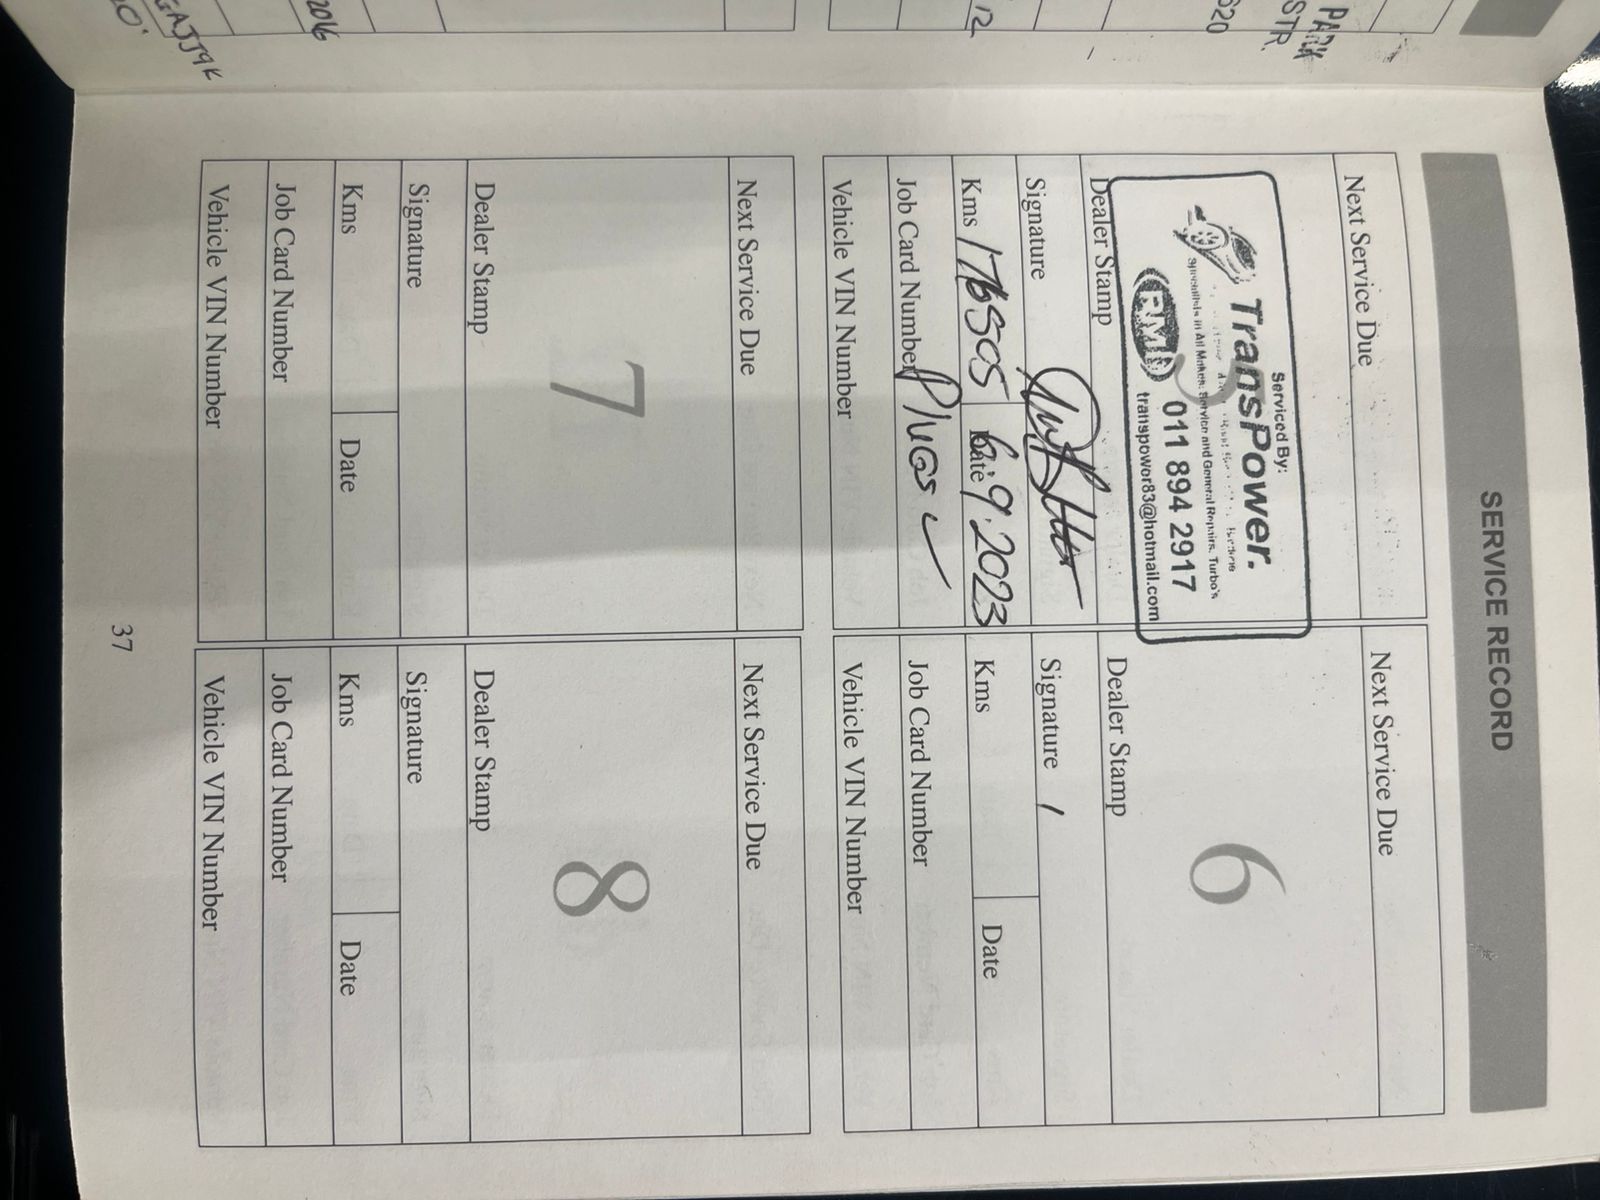 PARK
STR
620
12
2016
GAJJ9K
SERVICE RECORD
Next Service Due
Serviced By:
TransPower.
Specialists in All Makes: Service and General Repairs, Turbo's
RMI
011 894 2917
transpower83@hotmail.com
5
Dealer Stamp
Signature
Kms 176505 Date 6.9.2023
Job Card Number Plugs ✓
Vehicle VIN Number
Next Service Due
6
Dealer Stamp
Signature
Kms Date
Job Card Number
Vehicle VIN Number
Next Service Due
7
Dealer Stamp
Signature
Kms Date
Job Card Number
Vehicle VIN Number
Next Service Due
8
Dealer Stamp
Signature
Kms Date
Job Card Number
Vehicle VIN Number
37